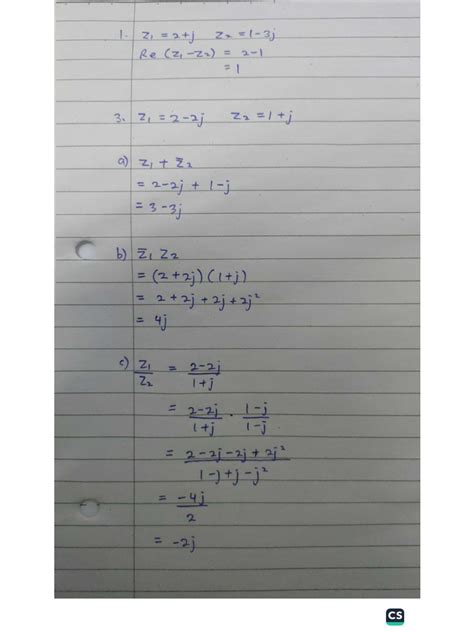 1. z₁ = 2+j z₂ = 1-3j
Re (z₁-z₂) = 2-1
= 1
3. z₁ = 2-2j z₂ = 1+j
a) z₁ + z̅₂
= 2-2j + 1-j
= 3-3j
b) z̅₁ z₂
= (2+2j)(1+j)
= 2+2j+2j+2j²
= 4j
c) z₁/z₂ = 2-2j/1+j
= 2-2j/1+j · 1-j/1-j
= 2-2j-2j+2j²/1-j+j-j²
= -4j/2
= -2j
CS